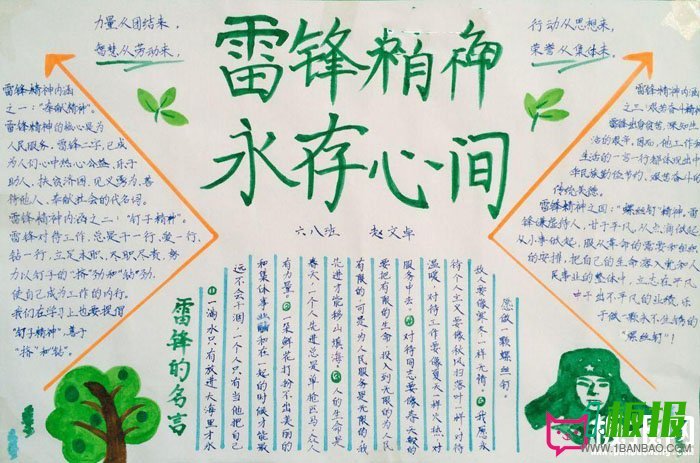 力量从团结来,
智慧从劳动来,
行动从思想来,
荣誉从集体来。
雷锋精神
永存心间
六八班 赵文卓
雷锋精神内涵
之一："奉献精神"。
雷锋精神的核心是为
人民服务。雷锋二字,已成
为人们心中热心公益、乐于
助人、扶贫济困、见义勇为、善
待他人、奉献社会的代名词。
雷锋精神内涵之二："钉子精神"。
雷锋对待工作,总是干一行、爱一行、
钻一行,立足本职、本职尽责,努
力以钉子的"挤"劲和"钻"劲,
使自己成为工作的内行。
我们在学习上也要提倡
"钉子精神",善于
"挤"和"钻"。
雷锋精神内涵
之三:艰苦奋斗精神
雷锋出身贫苦,深知生
活的艰辛。因而,他工作和
生活的一言一行都体现出中
华民族勤俭节约、艰苦奋斗的
传统美德。
雷锋精神之四:"螺丝钉"精神。雷
锋谦虚待人,甘于平凡,从点滴做起
从小事做起,服从革命的需要和组织
的安排,把自己的生命落入党和人
民事业的整体中,立志在平凡
中干出不平凡的业绩,乐
于做一颗永不生锈的
"螺丝钉"!
您做一颗螺丝钉。
敌人要像寒冬一样无情。我愿永
待个人主义要像秋风扫落叶一样,对待
温暖,对待工作要像夏天一样火热,对
服务中去。对待同志要像春天般的
要把有限的生命,投入到无限的为人民
有限的,可是,为人民服务是无限的,我
先进才能移山填海。人的生命是
春天,一个人先进总是单枪匹马,众人
有力量。一朵鲜花打扮不出美丽的
和集体事业融和在一起的时候才能最
远不会干涸,一个人只有当他把自己
一滴水只有放进大海里才永
雷锋的名言
板报
WWW.1BANBAO.COM